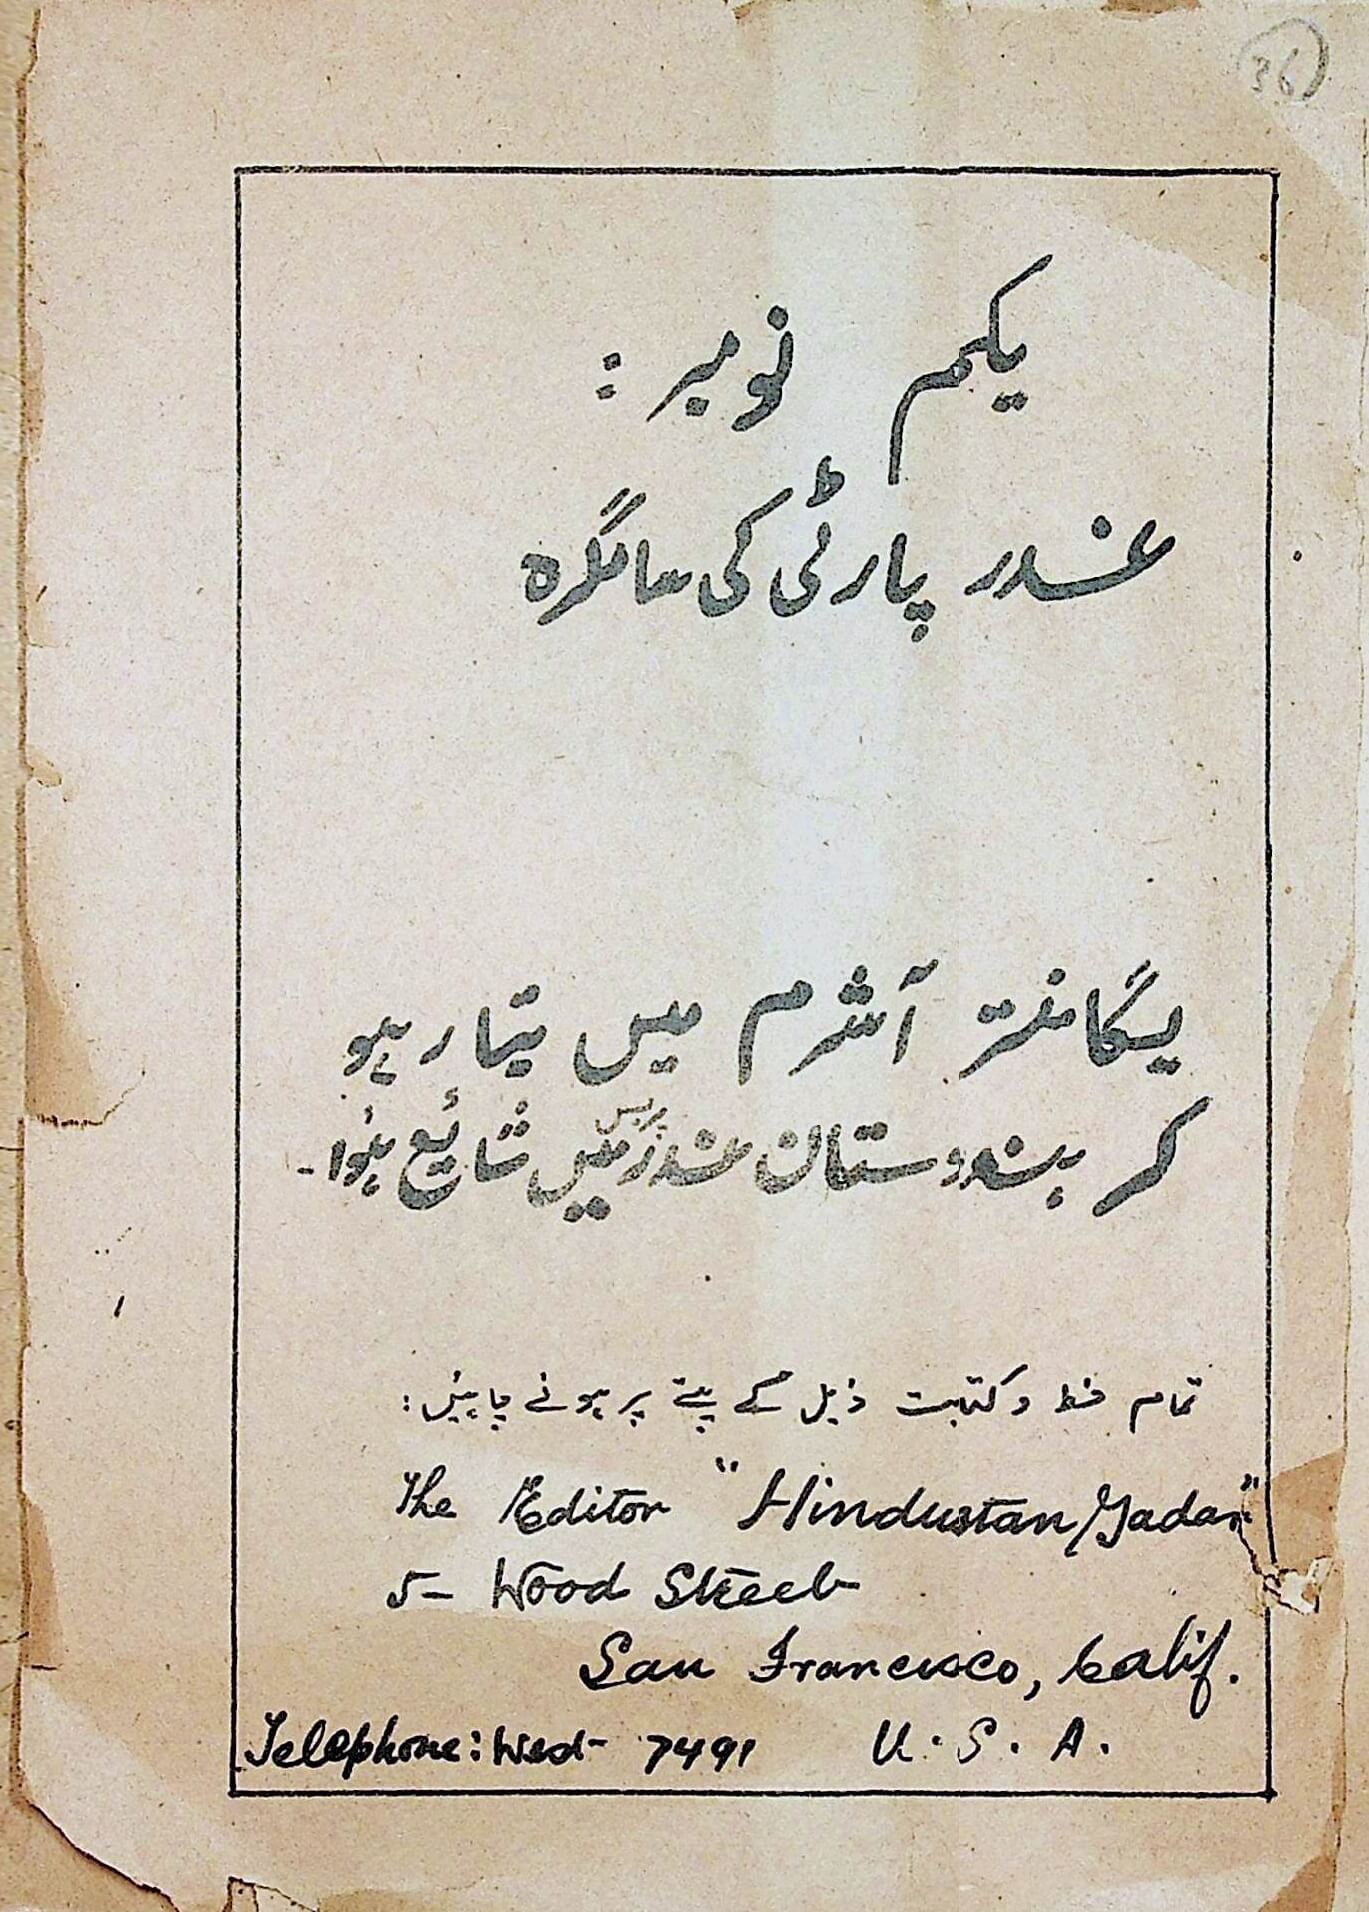 36
یکم نومبر :
غدر پارٹی کی سالگرہ
یگانتر آشرم میں تیار ہو
کر ہندوستان غدر پریس میں شائع ہؤا۔
تمام خط و کتابت ذیل کے پتے پر ہونے چاہئیں :
The Editor "Hindustan Gadar"
5- Wood Street
San Francisco, Calif.
Telephone: Wed- 7491 U. S. A.